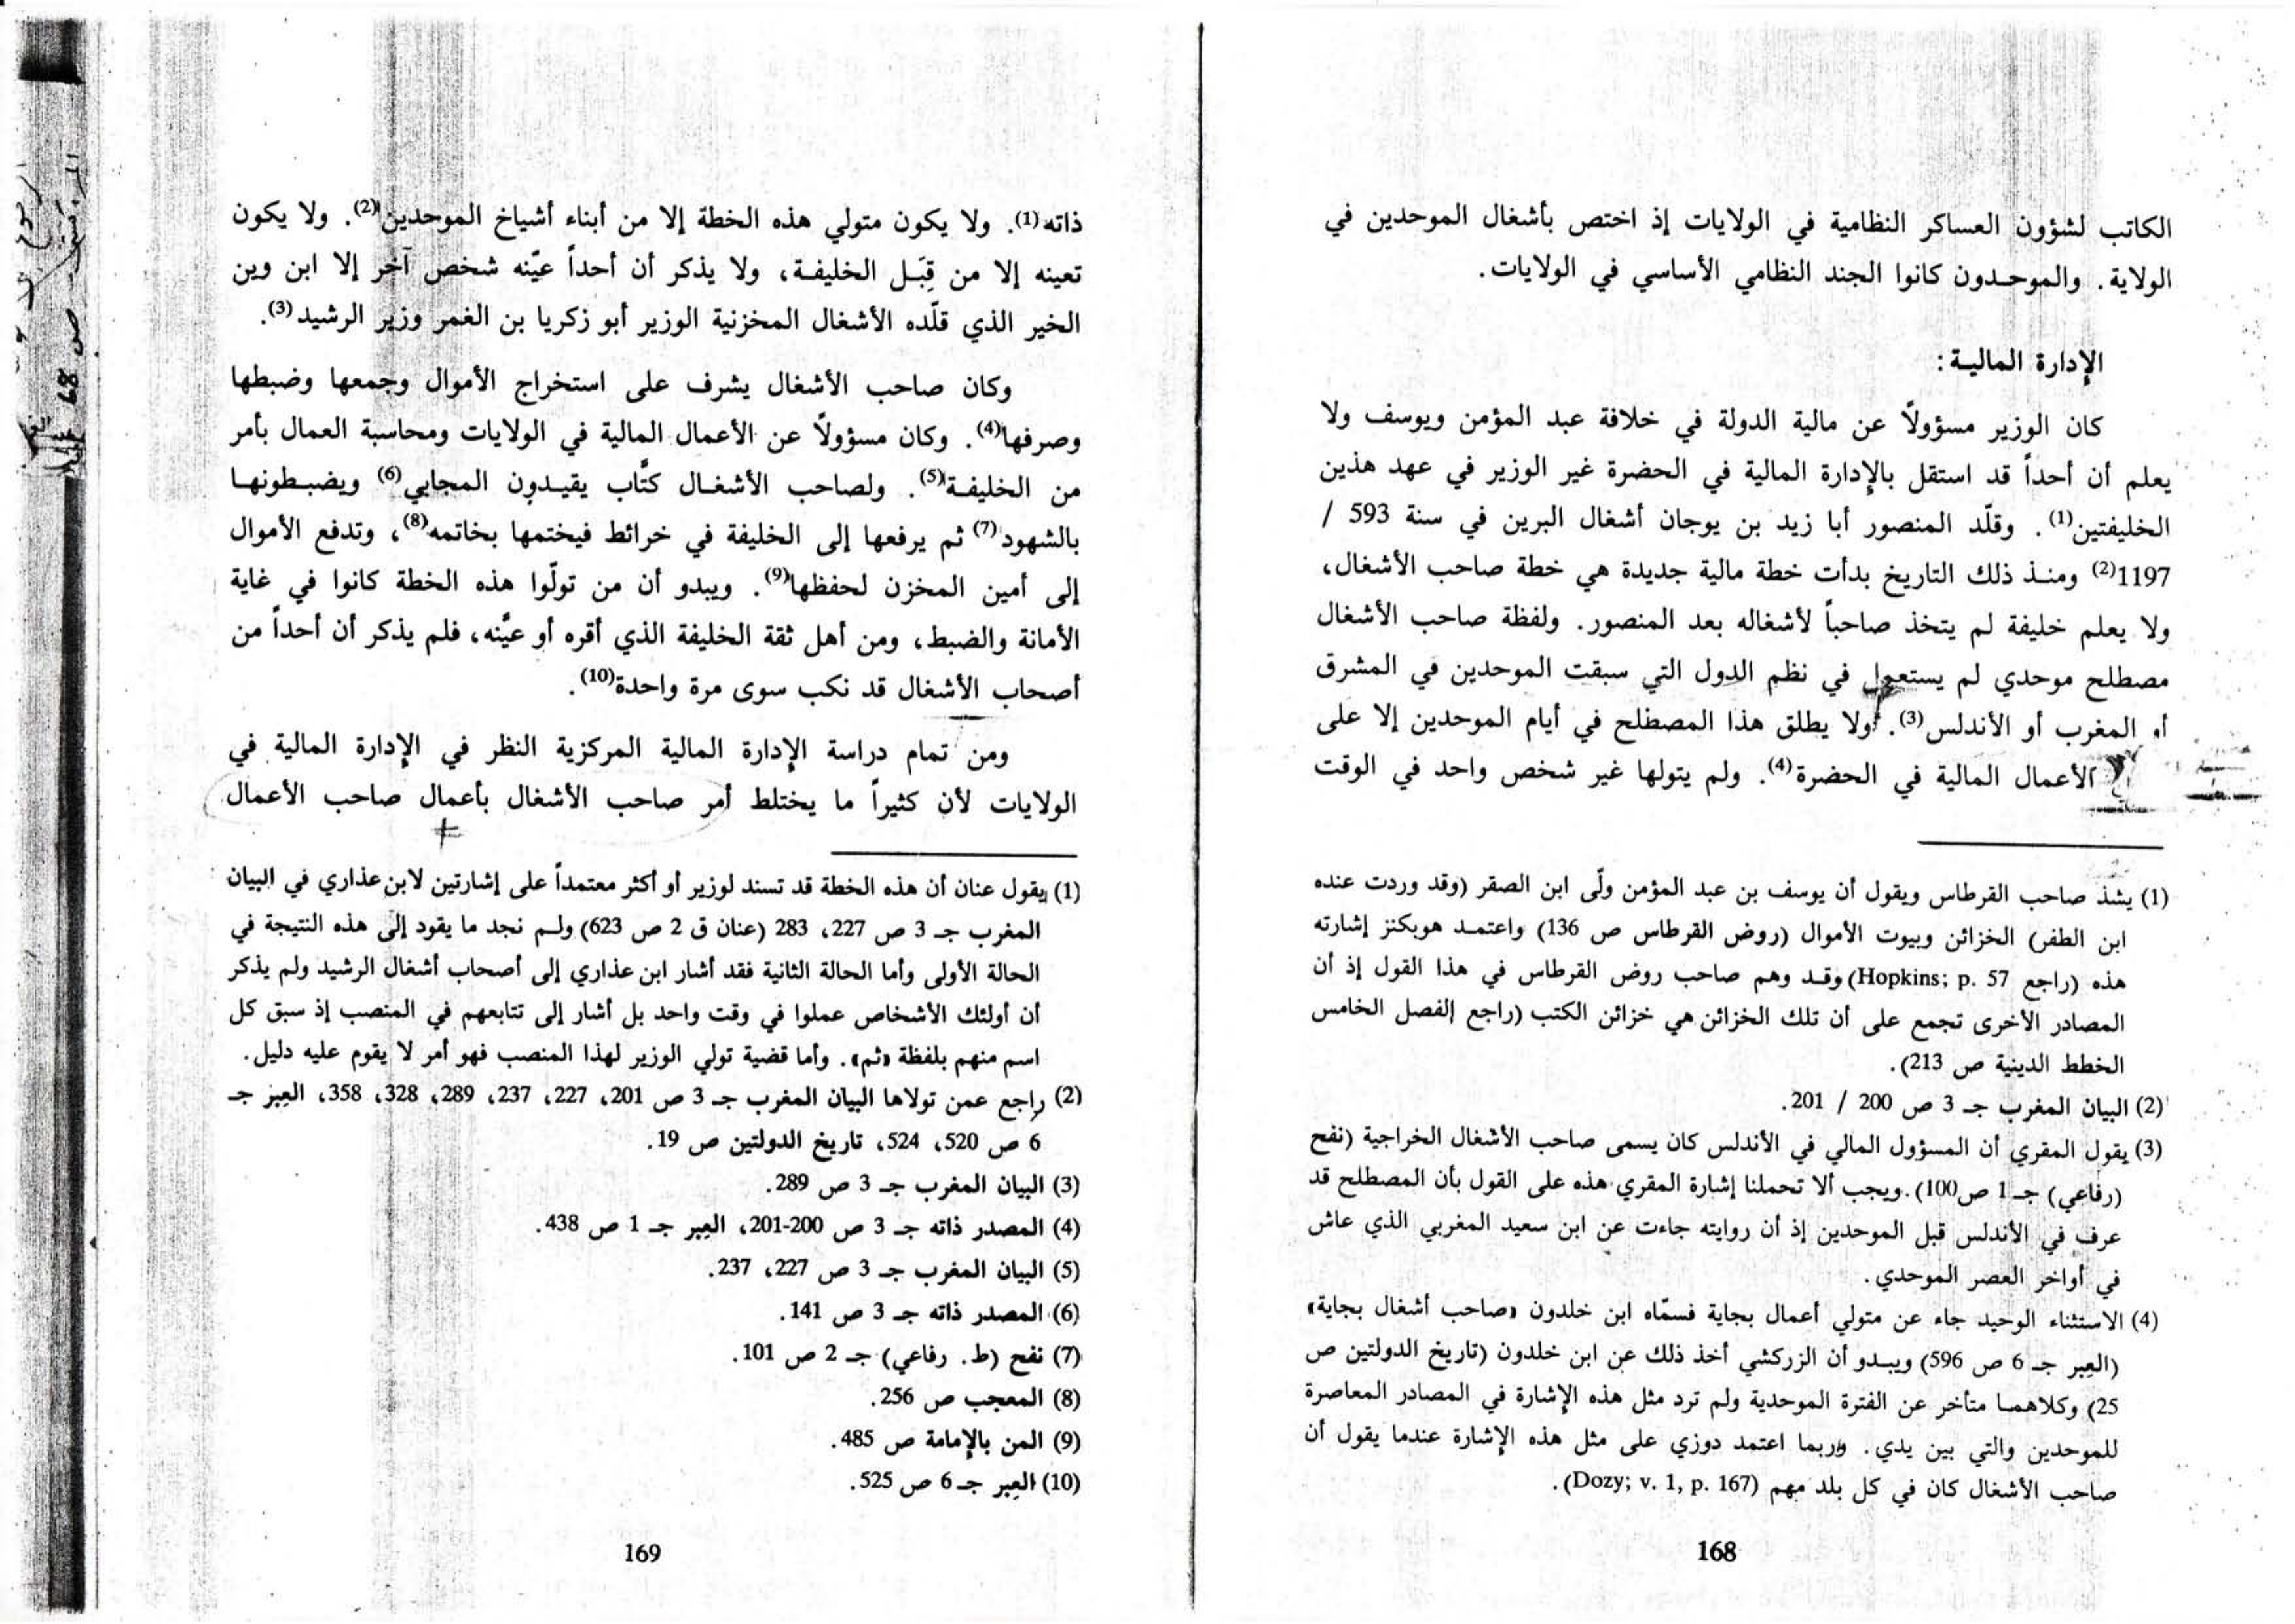 الكاتب لشؤون العساكر النظامية في الولايات إذ اختص بأشغال الموحدين في
الولاية. والموحدون كانوا الجند النظامي الأساسي في الولايات.
الإدارة المالية:
كان الوزير مسؤولاً عن مالية الدولة في خلافة عبد المؤمن ويوسف ولا
يعلم أن أحداً قد استقل بالإدارة المالية في الحضرة غير الوزير في عهد هذين
الخليفتين(1). وقلّد المنصور أبا زيد بن يوجان أشغال البرين في سنة 593 /
1197(2) ومنذ ذلك التاريخ بدأت خطة مالية جديدة هي خطة صاحب الأشغال،
ولا يعلم خليفة لم يتخذ صاحباً لأشغاله بعد المنصور. ولفظة صاحب الأشغال
مصطلح موحدي لم يستعمل في نظم الدول التي سبقت الموحدين في المشرق
أو المغرب أو الأندلس(3). ولا يطلق هذا المصطلح في أيام الموحدين إلا على
الأعمال المالية في الحضرة(4). ولم يتولها غير شخص واحد في الوقت
(1) يشذ صاحب القرطاس ويقول أن يوسف بن عبد المؤمن ولّى ابن الصقر (وقد وردت عنده
ابن الطفر) الخزائن وبيوت الأموال (روض القرطاس ص 136) واعتمد هوبكنز إشارته
هذه (راجع Hopkins; p. 57) وقد وهم صاحب روض القرطاس في هذا القول إذ أن
المصادر الأخرى تجمع على أن تلك الخزائن هي خزائن الكتب (راجع الفصل الخامس
الخطط الدينية ص 213).
(2) البيان المغرب جـ 3 ص 200 / 201.
(3) يقول المقري أن المسؤول المالي في الأندلس كان يسمى صاحب الأشغال الخراجية (نفح
(رفاعي) جـ 1 ص100). ويجب ألا تحملنا إشارة المقري هذه على القول بأن المصطلح قد
عرف في الأندلس قبل الموحدين إذ أن روايته جاءت عن ابن سعيد المغربي الذي عاش
في أواخر العصر الموحدي.
(4) الاستثناء الوحيد جاء عن متولي أعمال بجاية فسمّاه ابن خلدون «صاحب أشغال بجاية»
(العِبر جـ 6 ص 596) ويبدو أن الزركشي أخذ ذلك عن ابن خلدون (تاريخ الدولتين ص
25) وكلاهما متأخر عن الفترة الموحدية ولم ترد مثل هذه الإشارة في المصادر المعاصرة
للموحدين والتي بين يدي. وربما اعتمد دوزي على مثل هذه الإشارة عندما يقول أن
صاحب الأشغال كان في كل بلد مهم (Dozy; v. 1, p. 167).
168
ذاته(1). ولا يكون متولي هذه الخطة إلا من أبناء أشياخ الموحدين(2). ولا يكون
تعينه إلا من قِبَل الخليفة، ولا يذكر أن أحداً عيّنه شخص آخر إلا ابن وين
الخير الذي قلّده الأشغال المخزنية الوزير أبو زكريا بن الغمر وزير الرشيد(3).
وكان صاحب الأشغال يشرف على استخراج الأموال وجمعها وضبطها
وصرفها(4). وكان مسؤولاً عن الأعمال المالية في الولايات ومحاسبة العمال بأمر
من الخليفة(5). ولصاحب الأشغال كتَّاب يقيدون المجابي(6) ويضبطونها
بالشهود(7) ثم يرفعها إلى الخليفة في خرائط فيختمها بخاتمه(8)، وتدفع الأموال
إلى أمين المخزن لحفظها(9). ويبدو أن من تولّوا هذه الخطة كانوا في غاية
الأمانة والضبط، ومن أهل ثقة الخليفة الذي أقره أو عيَّنه، فلم يذكر أن أحداً من
أصحاب الأشغال قد نكب سوى مرة واحدة(10).
ومن تمام دراسة الإدارة المالية المركزية النظر في الإدارة المالية في
الولايات لأن كثيراً ما يختلط أمر صاحب الأشغال بأعمال صاحب الأعمال
(1) يقول عنان أن هذه الخطة قد تسند لوزير أو أكثر معتمداً على إشارتين لابن عذاري في البيان
المغرب جـ 3 ص 227، 283 (عنان ق 2 ص 623) ولم نجد ما يقود إلى هذه النتيجة في
الحالة الأولى وأما الحالة الثانية فقد أشار ابن عذاري إلى أصحاب أشغال الرشيد ولم يذكر
أن أولئك الأشخاص عملوا في وقت واحد بل أشار إلى تتابعهم في المنصب إذ سبق كل
اسم منهم بلفظة «ثم». وأما قضية تولي الوزير لهذا المنصب فهو أمر لا يقوم عليه دليل.
(2) راجع عمن تولاها البيان المغرب جـ 3 ص 201، 227، 237، 289، 328، 358، العِبر جـ
6 ص 520، 524، تاريخ الدولتين ص 19.
(3) البيان المغرب جـ 3 ص 289.
(4) المصدر ذاته جـ 3 ص 200-201، العِبر جـ 1 ص 438.
(5) البيان المغرب جـ 3 ص 227، 237.
(6) المصدر ذاته جـ 3 ص 141.
(7) نفح (ط. رفاعي) جـ 2 ص 101.
(8) المعجب ص 256.
(9) المن بالإمامة ص 485.
(10) العِبر جـ 6 ص 525.
169